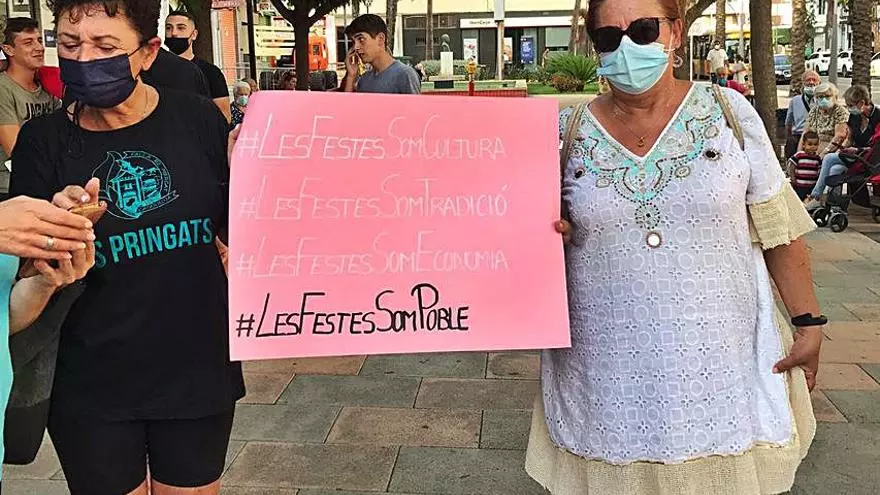 #LesFestesSomCultura
#LesFestesSomTradició
#LesFestesSomEconomia
#LesFestesSomPoble
S PRINGATS